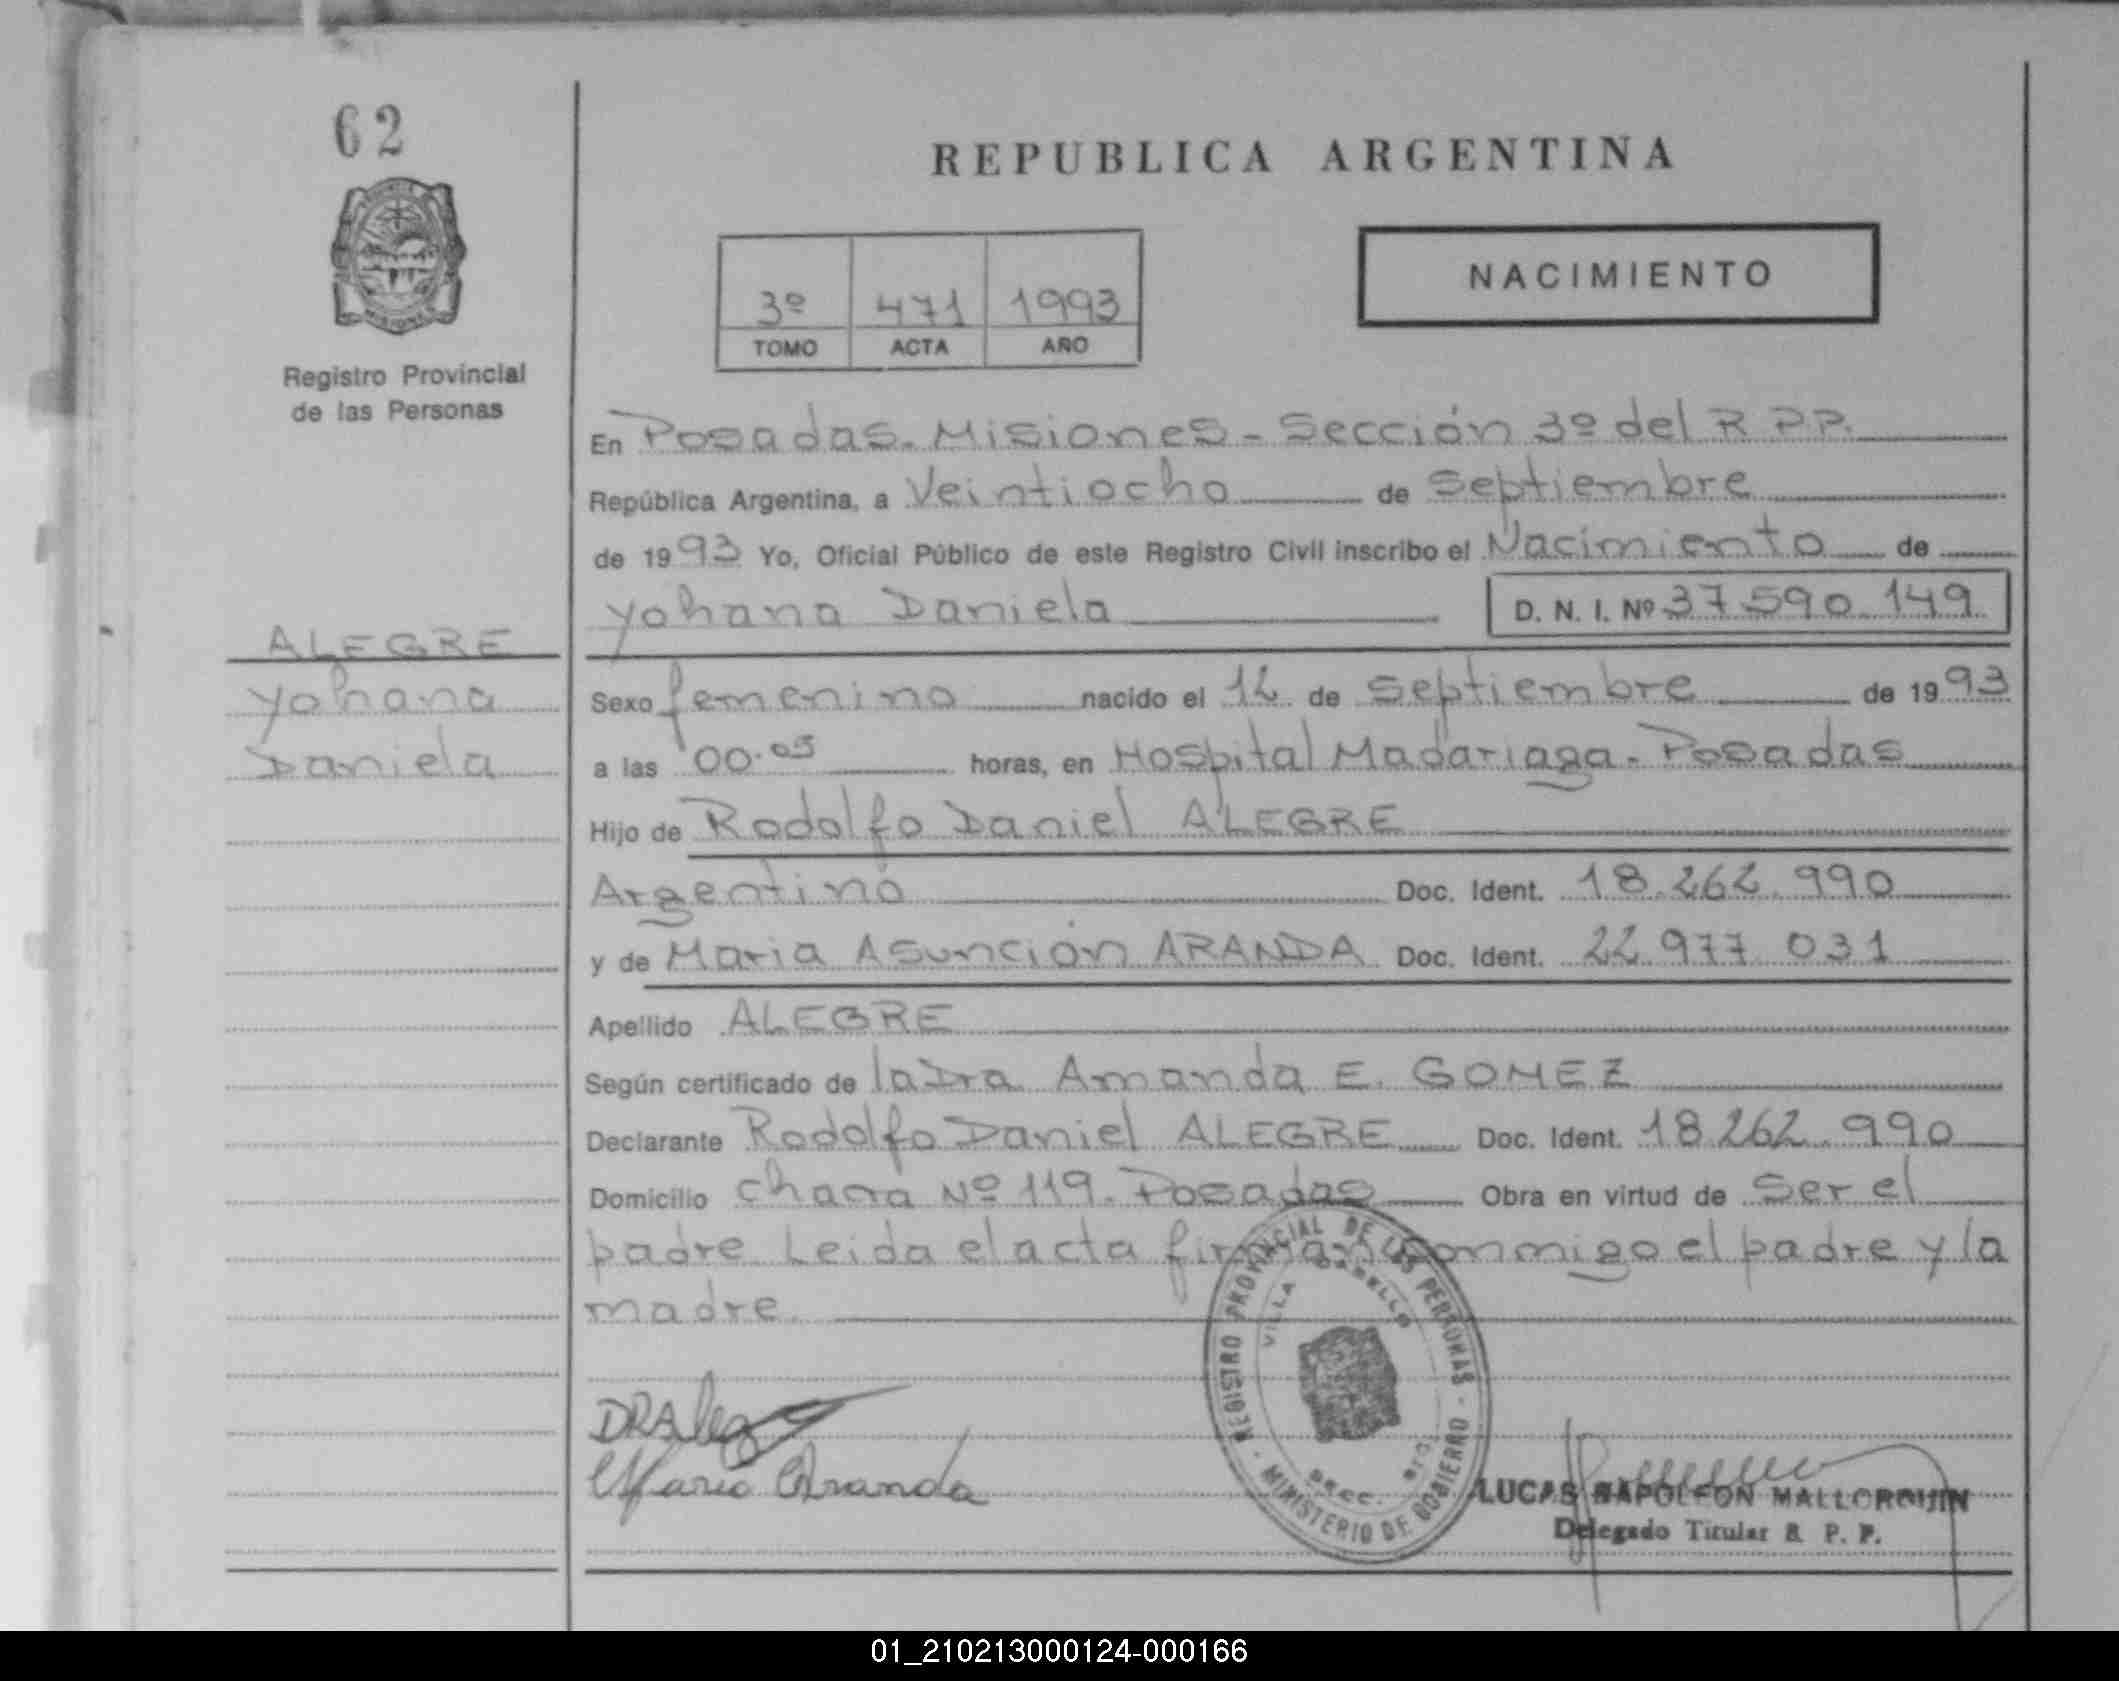 62
REPUBLICA ARGENTINA
NACIMIENTO
3º 471 1993
TOMO ACTA AÑO
Registro Provincial
de las Personas
En Posadas. Misiones - Sección 3º del R P.P.
República Argentina, a Veintiocho de Septiembre
de 1993 Yo, Oficial Público de este Registro Civil inscribo el Nacimiento de
Yohana Daniela D. N. I. Nº 37.590.149
ALEGRE
Yohana
Daniela
Sexo femenino nacido el 12 de Septiembre de 1993
a las 00.05 horas, en Hospital Madariaga. Posadas
Hijo de Rodolfo Daniel ALEGRE
Argentino Doc. Ident. 18.262.990
y de Maria Asunción ARANDA Doc. Ident. 22 977 031
Apellido ALEGRE
Según certificado de la Dra Amanda E. GOMEZ
Declarante Rodolfo Daniel ALEGRE Doc. Ident. 18.262.990
Domicilio chacra Nº 119. Posadas Obra en virtud de Ser el
padre Leida el acta firman conmigo el padre y la
madre.
REGISTRO PROVINCIAL DE LAS PERSONAS
VILLA CABELLO
MINISTERIO DE GOBIERNO
DRAleg
Maria Aranda
LUCAS NAPOLEON MALLORQUIN
Delegado Titular R. P. P.
01_210213000124-000166